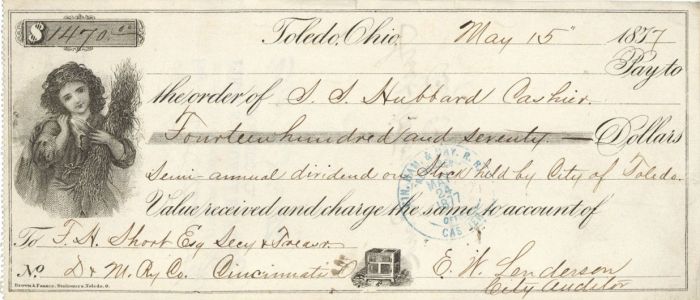 $1470.00
Toledo, Ohio, May 15" 1877
Pay to
the order of S. S. Hubbard Cashier.
Fourteen hundred and seventy — Dollars
Semi-annual dividend on Stock held by City of Toledo.
Value received and charge the same to account of
To F. H. Short Esq Secy & Treasr
No D & M. Ry Co. Cincinnati O
E. W. Lenderson
City Auditor
Brown & Faunce, Stationers, Toledo, O.
HAM. & DAY. R. R.
MAY
24
1877
CAS